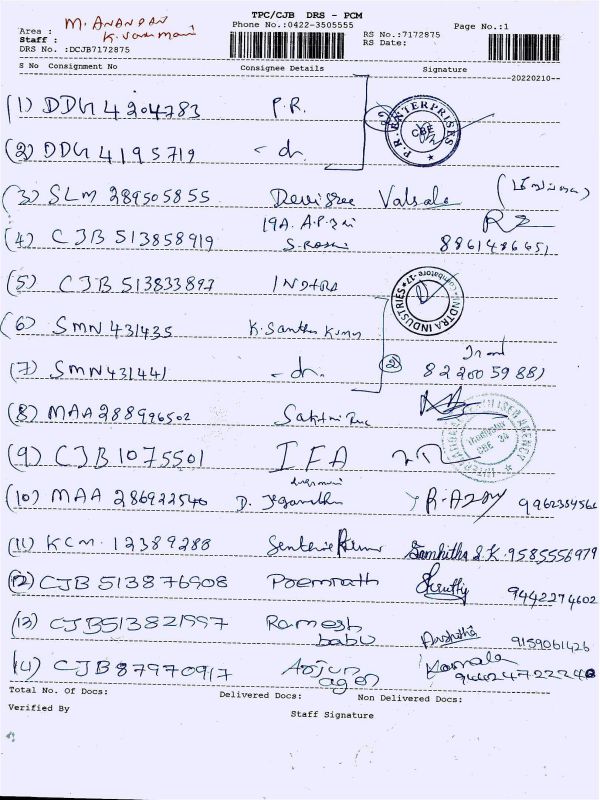 TPC/CJB DRS - PCM
Phone No.:0422-3505555
Page No.:1
Area : M. ANANDAN
Staff :
DRS No. :DCJB7172875
RS No.:7172875
RS Date:
S No Consignment No Consignee Details Signature
20220210
(1) DDG 4204783 P.R. P.R. ENTERPRISES CBE
(2) DDG 4195719 - do.
(3) SLM 289505855 Devisree Valsala
(4) CJB 513858919 19A. A.P. 8861486651
(5) CJB 513833897 INDTRA INDTRA INDUSTRIES Coimbatore-17
(6) SMN 431435 K. Santhos Kumar
(7) SMN 431441 - do. (2) 8220059881
(8) MAA 288996502
(9) CJB 1075501 IFA
(10) MAA 286922540 D. Jeganathan
(11) KCM 12389288 Senthil Kumar Samhitha S.K. 9585556979
(12) CJB 513876908 Poemnath 9442274602
(13) CJB513821597 Ramesh babu 9159061426
(14) CJB 87970917 Arjun agen Kamala
Total No. Of Docs: Delivered Docs: Non Delivered Docs:
Verified By
Staff Signature